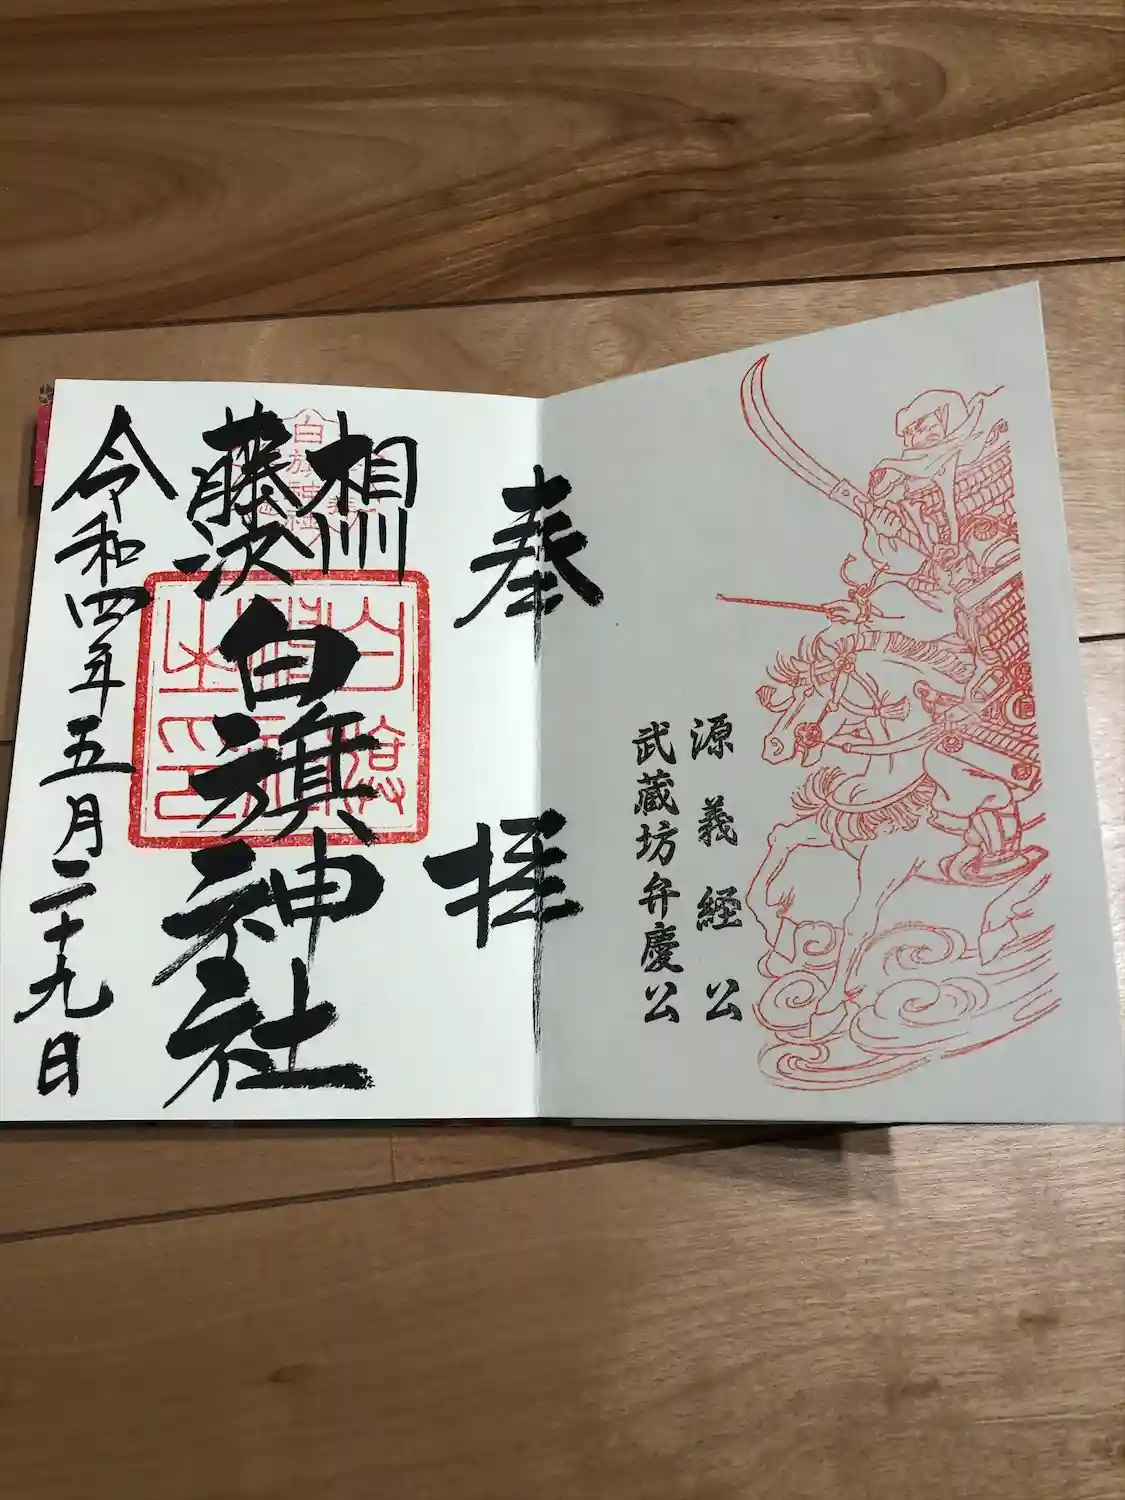 源義経公
武蔵坊弁慶公
奉拝
相州
藤沢
白旗神社
令和四年五月二十九日